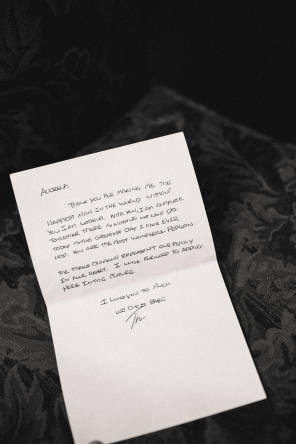 THANK YOU FOR MAKING ME THE
HAPPIEST MAN IN THE WORLD. WITHOUT
YOU I AM NOTHING. WITH YOU, I AM COMPLETE.
TOGETHER THERE IS NOTHING WE CAN'T DO.
TODAY IS THE GREATEST DAY I HAVE EVER
HAD. YOU ARE THE MOST WONDERFUL PERSON
THE THREE DIAMONDS REPRESENT OUR FAMILY
IN OUR HEART. I LOOK FORWARD TO ADDING
MORE IN THE FUTURE.
I LOVE YOU SO MUCH